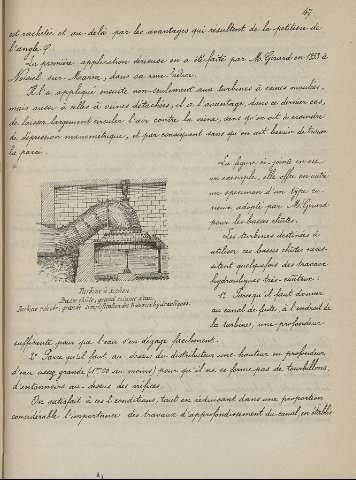 47
est rachetée, et au-delà par les avantages qui résultent de la petitesse de
l'angle φ.
La première application sérieuse en a été faite par M. Girard en 1853 à
Noisiel-sur-Marne, dans sa
Il l'a appliqué ensuite non-seulement aux turbines à veines moulées,
mais aussi à celles à veines détachées, il a l'avantage, dans ce dernier cas,
de laisser largement circuler l'air contre la veine, sans qu'on ait à craindre
de dépression manométrique, et par conséquent sans qu'on ait besoin de
la paroi.
La figure ci-jointe en est
un exemple, elle offre en outre
un specimen d'un type cu-
rieux adopté par M. Girard
pour les basses chûtes.
Les turbines destinées à
utiliser ces basses chûtes néces-
sitent quelquefois des travaux
hydrauliques très-coûteux:
Turbine à siphon
Basse chûte, grand volume d'eau.
Turbine robuste, grande simplification des travaux hydrauliques.
1° Lorsqu'il faut donner
au canal de fuite, à l'endroit de
la turbine, une profondeur
suffisante pour que l'eau s'en dégage facilement.
2° Parce qu'il faut au-dessus du distributeur une hauteur ou profondeur
d'eau assez grande (1m00 au moins) pour qu'il ne se forme pas de tourbillons,
d'entonnoirs au-dessus des orifices.
On satisfait à ces 2 conditions, tout en réduisant dans une proportion
considérable l'importance des travaux d'approfondissement du canal, en